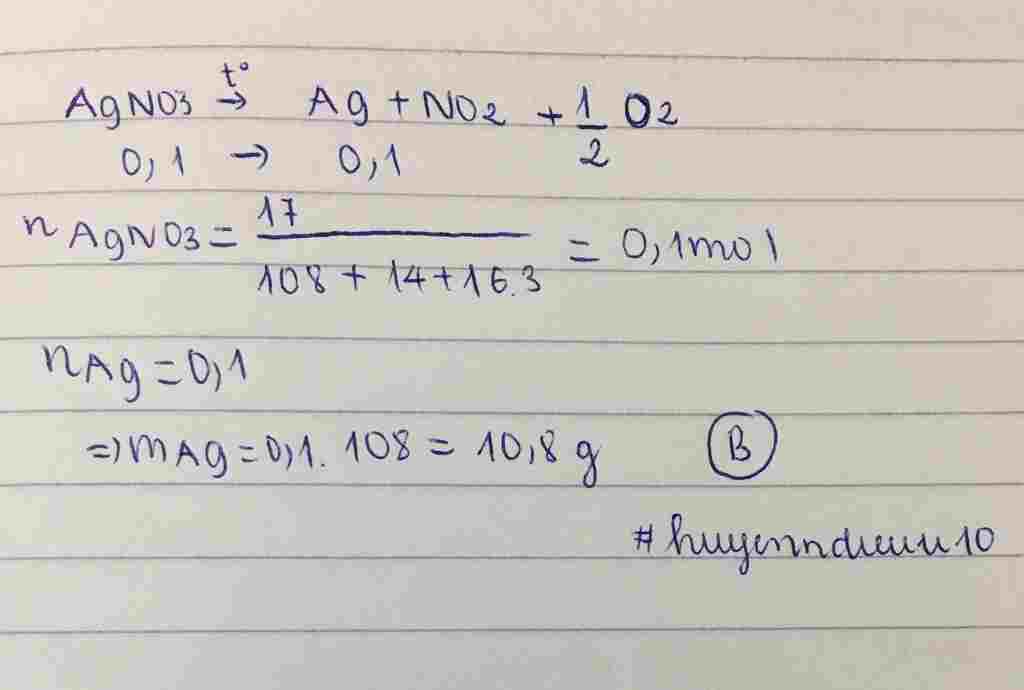 AgNO3 t° → Ag + NO2 + 1/2 O2
0,1 → 0,1
n AgNO3 = 17 / 108 + 14 + 16.3 = 0,1mol
n Ag = 0,1
=) m Ag = 0,1. 108 = 10,8 g B
#huyenndieuu10